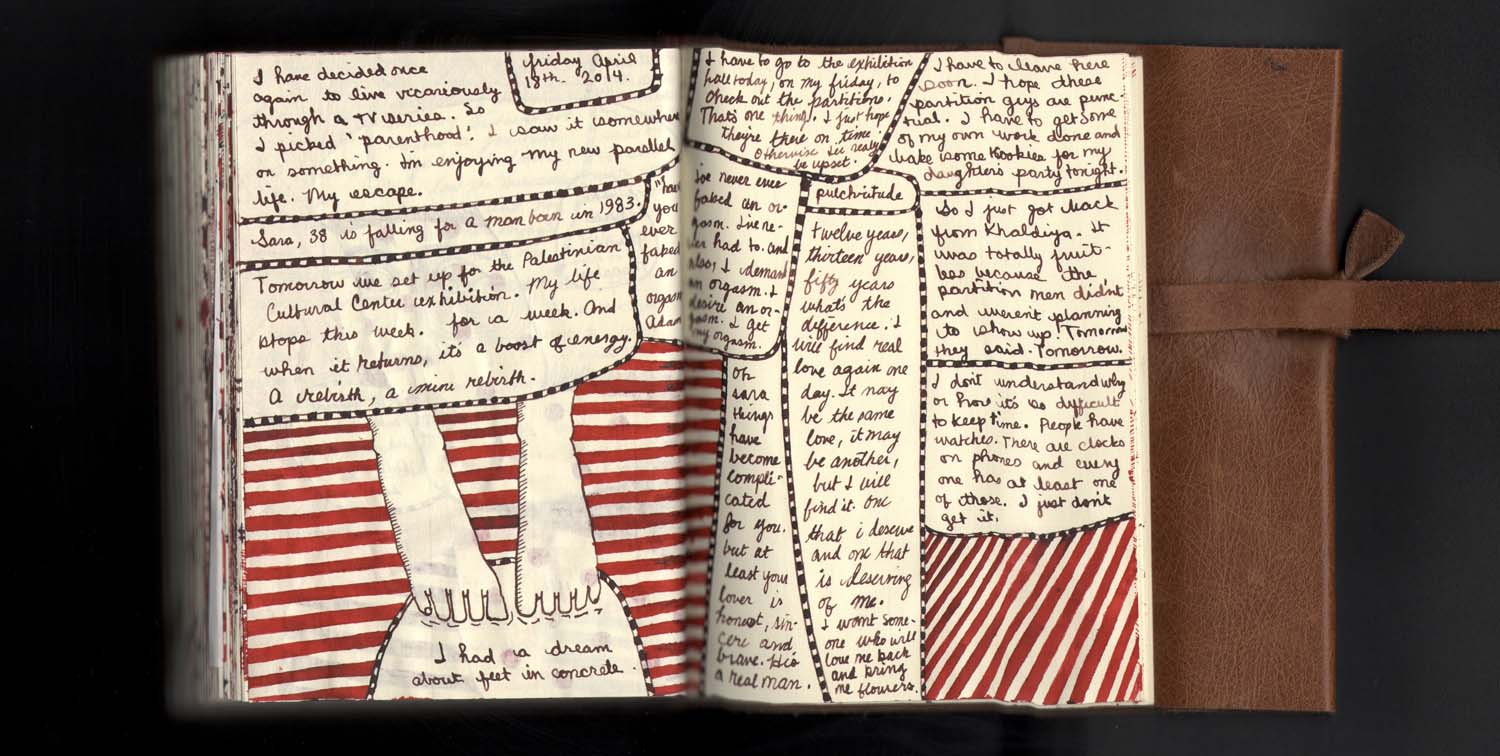 I have decided once
again to live vicariously
through a TV series. So
I picked 'parenthood'. I saw it somewhere
on something. Im enjoying my new parallel
life. My escape.
friday April
18th. 2014.
Sara, 38 is falling for a man born in 1983.
Tomorrow we set up for the Palestinian
Cultural Center exhibition. My life
stops this week. for a week. And
when it returns, it's a boost of energy.
A rebirth, a mini rebirth.
"have
you
ever
faked
an
orgasm
Adam
I had a dream
about feet in concrete.
I have to go to the exhibition
hall today, on my friday, to
check out the partitions.
Thats one thing. I just hope
theyre there on time.
Otherwise I'll really
be upset.
I've never ever
faked an or-
gasm. I've ne-
ver had to. and
also, I demand
an orgasm. I
desire an or-
gasm. I get
my orgasm.
oh
sara
things
have
become
compli-
cated
for you.
but at
least your
lover is
honest, sin-
cere and
brave. He's
a real man.
pulchritude
twelve years,
thirteen years,
fifty years
what's the
difference. I
will find real
love again one
day. It may
be the same
love, it may
be another,
but I will
find it. One
that i deserve
and one that
is deserving
of me.
I want some-
one who will
love me back
and bring
me flowers.
I have to leave here
soon. I hope these
partition guys are punc-
tual. I have to get some
of my own work done and
bake some kookies for my
daughters party tonight.
So I just got back
from Khaldiya. It
was totally fruit-
less because the
partition men didn't
and werent planning
to show up. Tomorrow
they said. Tomorrow.
I don't understand why
or how it's so difficult
to keep time. People have
watches. There are clocks
on phones and every
one has at least one
of those. I just don't
get it.